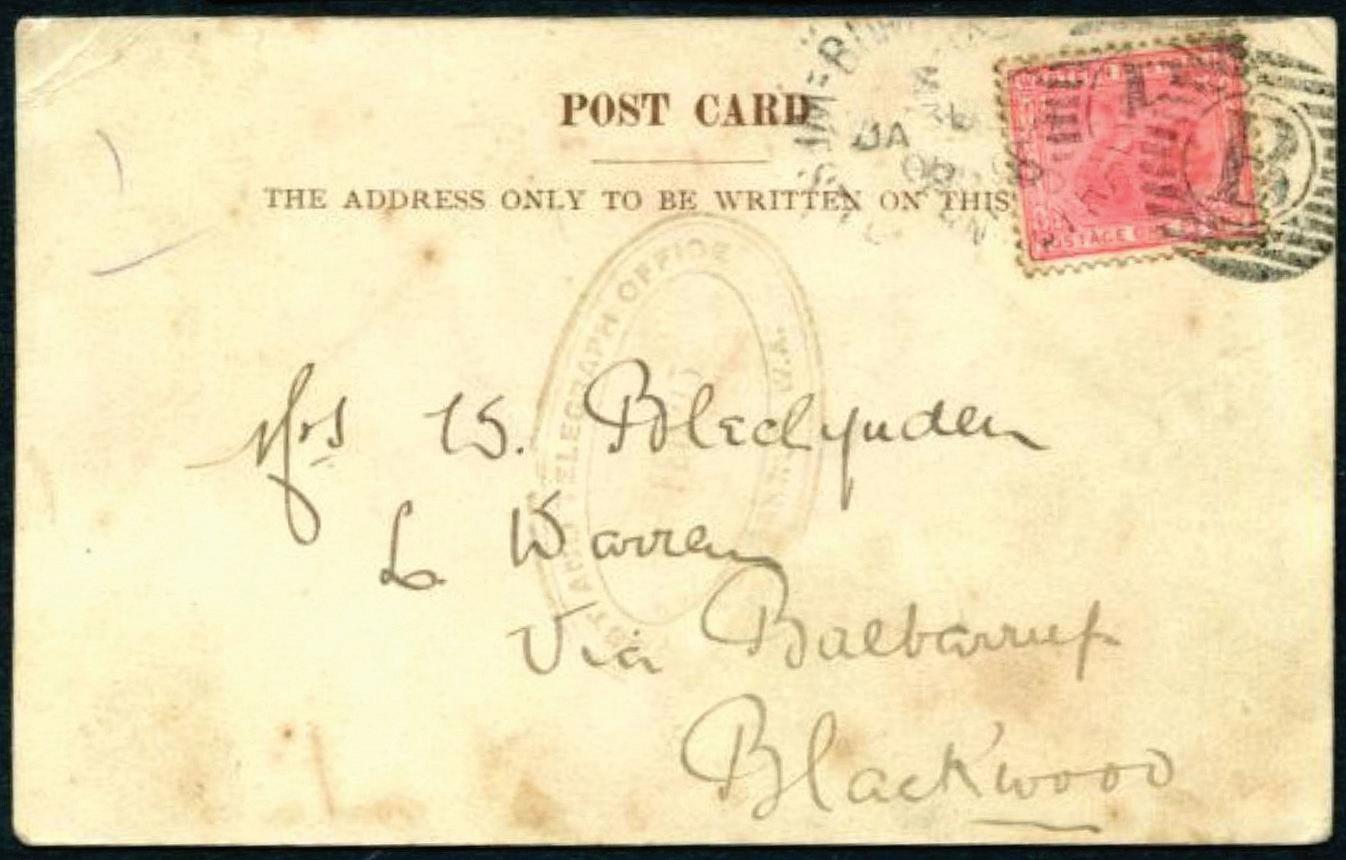 POST CARD
THE ADDRESS ONLY TO BE WRITTEN ON THIS
POSTAGE
AND TELEGRAPH OFFICE
W.A.
Mrs W. Bleclynden
L. Warren
Via Balbarrup
Blackwood